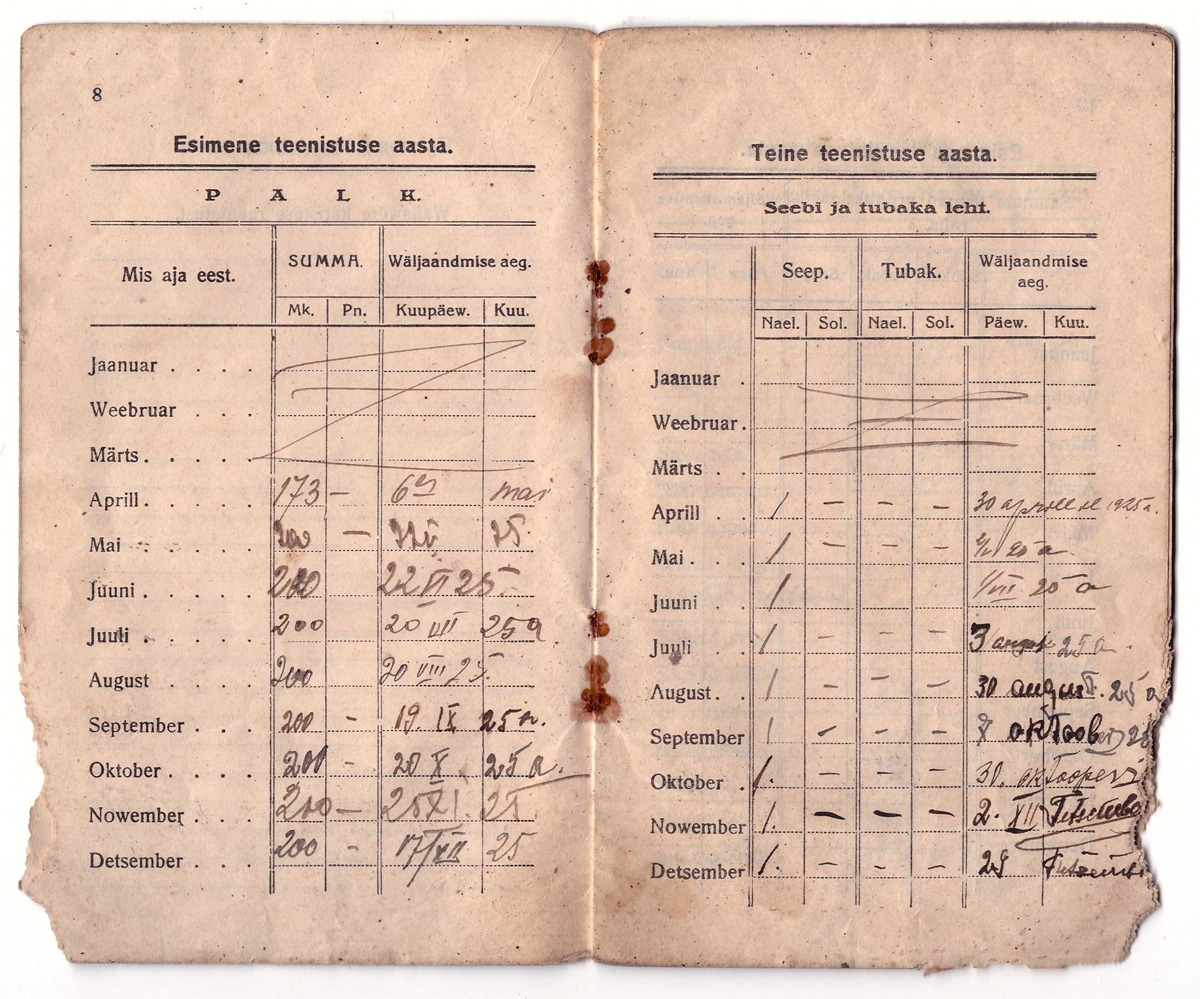 8
Esimene teenistuse aasta.
P A L K.
Mis aja eest. SUMMA. Wäljaandmise aeg.
Mk. Pn. Kuupäew. Kuu.
Jaanuar . . . .
Weebruar . . .
Märts . . . . .
Aprill . . . . 173 — 6 mai
Mai . . . . —
Juuni . . . . 200 22 VI 25
Juuli . . . . . 200 20 VII 25 a
August . . . . 200 20 VIII 25.
September . . 200 - 19. IX 25 a.
Oktober . . . . 200 - 20 X. 25 a.
Nowember . . . 200 — XI. 25
Detsember . . . 200 - 17/XII 25
Teine teenistuse aasta.
Seebi ja tubaka leht.
Seep. Tubak. Wäljaandmise aeg.
Nael. Sol. Nael. Sol. Päew. Kuu.
Jaanuar .
Weebruar .
Märts .
Aprill . 1 — — — 30 aprill 1925 a.
Mai . 1 — — — 25 a
Juuni . 1 25 a
Juuli . 1 - - — 3 august 25 a.
August . 1 - — — 30 august. 25 a
September 1 - — — oktoob
Oktober . 1. - — — 30. oktoober
Nowember 1. — — — 2. XII
Detsember 1. - — - 29